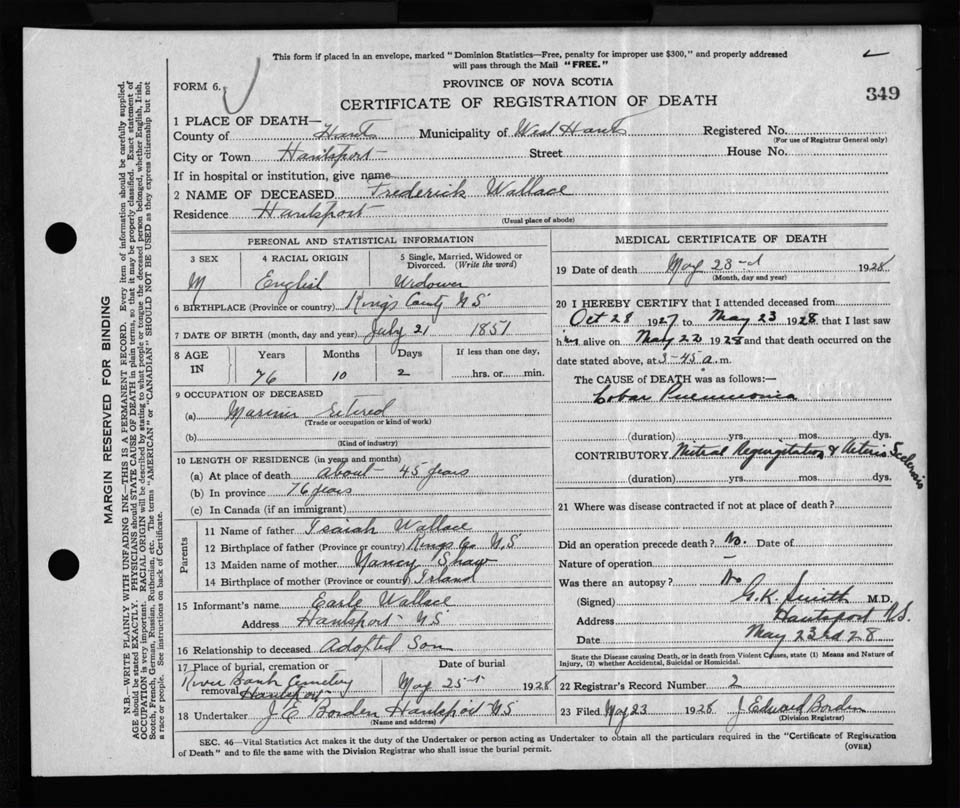 This form if placed in an envelope, marked "Dominion Statistics—Free, penalty for improper use $300," and properly addressed
will pass through the Mail "FREE."
FORM 6.
PROVINCE OF NOVA SCOTIA
CERTIFICATE OF REGISTRATION OF DEATH
349
1 PLACE OF DEATH—
County of Hants Municipality of West Hants Registered No.
(For use of Registrar General only)
City or Town Hantsport Street House No.
If in hospital or institution, give name
2 NAME OF DECEASED Frederick Wallace
Residence Hantsport
(Usual place of abode)
PERSONAL AND STATISTICAL INFORMATION
3 SEX 4 RACIAL ORIGIN 5 Single, Married, Widowed or
Divorced. (Write the word)
M English Widower
6 BIRTHPLACE (Province or country) Kings County NS
7 DATE OF BIRTH (month, day and year) July 21 1851
8 AGE IN Years Months Days If less than one day,
76 10 2 hrs. or min.
9 OCCUPATION OF DECEASED
(a) Mariner retired
(Trade or occupation or kind of work)
(b)
(Kind of industry)
10 LENGTH OF RESIDENCE (in years and months)
(a) At place of death about 45 years
(b) In province 76 years
(c) In Canada (if an immigrant)
Parents
11 Name of father Isaiah Wallace
12 Birthplace of father (Province or country) Kings Co N.S
13 Maiden name of mother Nancy Shaw
14 Birthplace of mother (Province or country) Island
15 Informant's name Earle Wallace
Address Hantsport NS
16 Relationship to deceased Adopted Son
17 Place of burial, cremation or Date of burial
River Bank Cemetery
removal Hantsport May 25 1928
18 Undertaker J. E Borden Hantsport NS
(Name and address)
MEDICAL CERTIFICATE OF DEATH
19 Date of death May 23rd 1928
(Month, day and year)
20 I HEREBY CERTIFY that I attended deceased from
Oct 28 1927 to May 23 1928, that I last saw
him alive on May 22 1928 and that death occurred on the
date stated above, at 3-45 a. m.
The CAUSE of DEATH was as follows:—
Lobar Pneumonia
(duration) yrs. mos. dys.
CONTRIBUTORY. Mitral Regurgitation & Arterio Sclerosis
(duration) yrs. mos. dys.
21 Where was disease contracted if not at place of death?
Did an operation precede death? No. Date of
Nature of operation —
Was there an autopsy? No
(Signed) G.K. Smith M.D.
Address Hantsport N.S.
Date May 23rd 28
State the Disease causing Death, or in death from Violent Causes, state (1) Means and Nature of
Injury, (2) whether Accidental, Suicidal or Homicidal.
22 Registrar's Record Number 2
23 Filed May 23 1928 J Edward Borden
(Division Registrar)
SEC. 46—Vital Statistics Act makes it the duty of the Undertaker or person acting as Undertaker to obtain all the particulars required in the "Certificate of Registration
of Death" and to file the same with the Division Registrar who shall issue the burial permit.
(OVER)
MARGIN RESERVED FOR BINDING
N.B.—WRITE PLAINLY WITH UNFADING INK—THIS IS A PERMANENT RECORD. Every item of information should be carefully supplied.
AGE should be stated EXACTLY. PHYSICIANS should STATE CAUSE OF DEATH in plain terms, so that it may be properly classified. Exact statement of
OCCUPATION is very important. RACIAL ORIGIN will be described by stating to what people or tongue the deceased person belonged, whether English, Irish,
Scotch, French, German, Russian, Ruthenian, etc. The terms "AMERICAN" or "CANADIAN" SHOULD NOT BE USED as they express citizenship but not
a race or people. See instructions on back of Certificate.